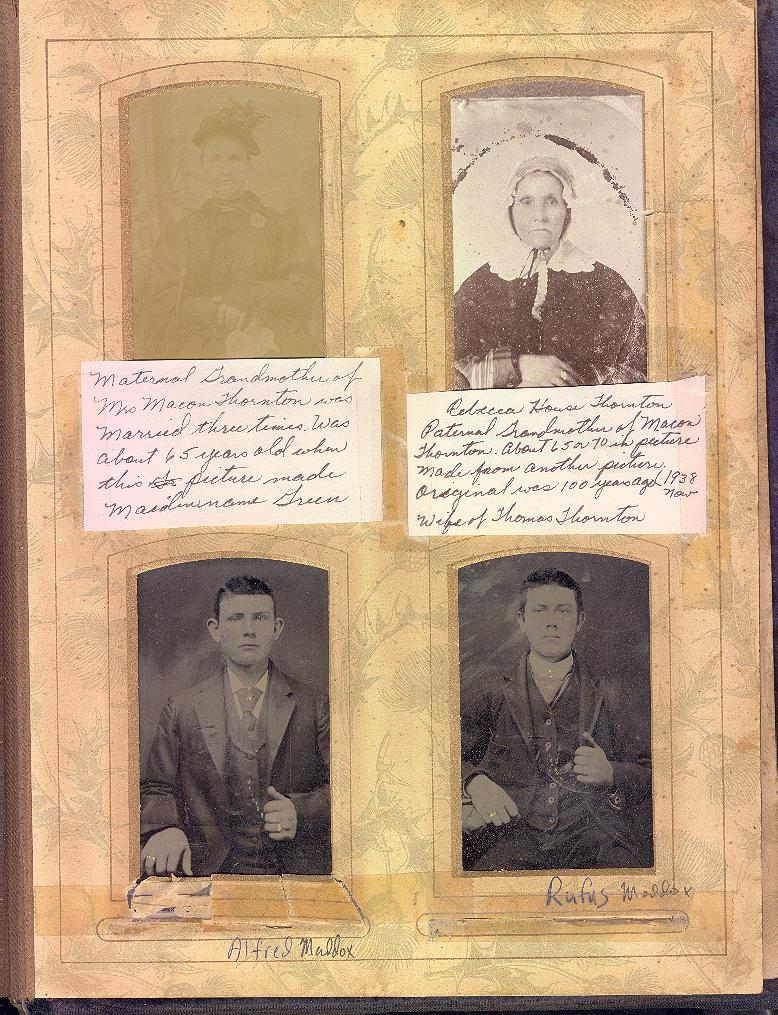 Maternal Grandmother of
Mrs Macon Thornton was
Married three times. Was
about 65 years old when
this picture made
Maiden name Green
Rebecca House Thornton
Paternal Grandmother of Macon
Thornton. About 65 or 70 in picture
made from another picture.
Original was 100 years ago 1938
now
Wife of Thomas Thornton
Rufus Maddox
Alfred Maddox